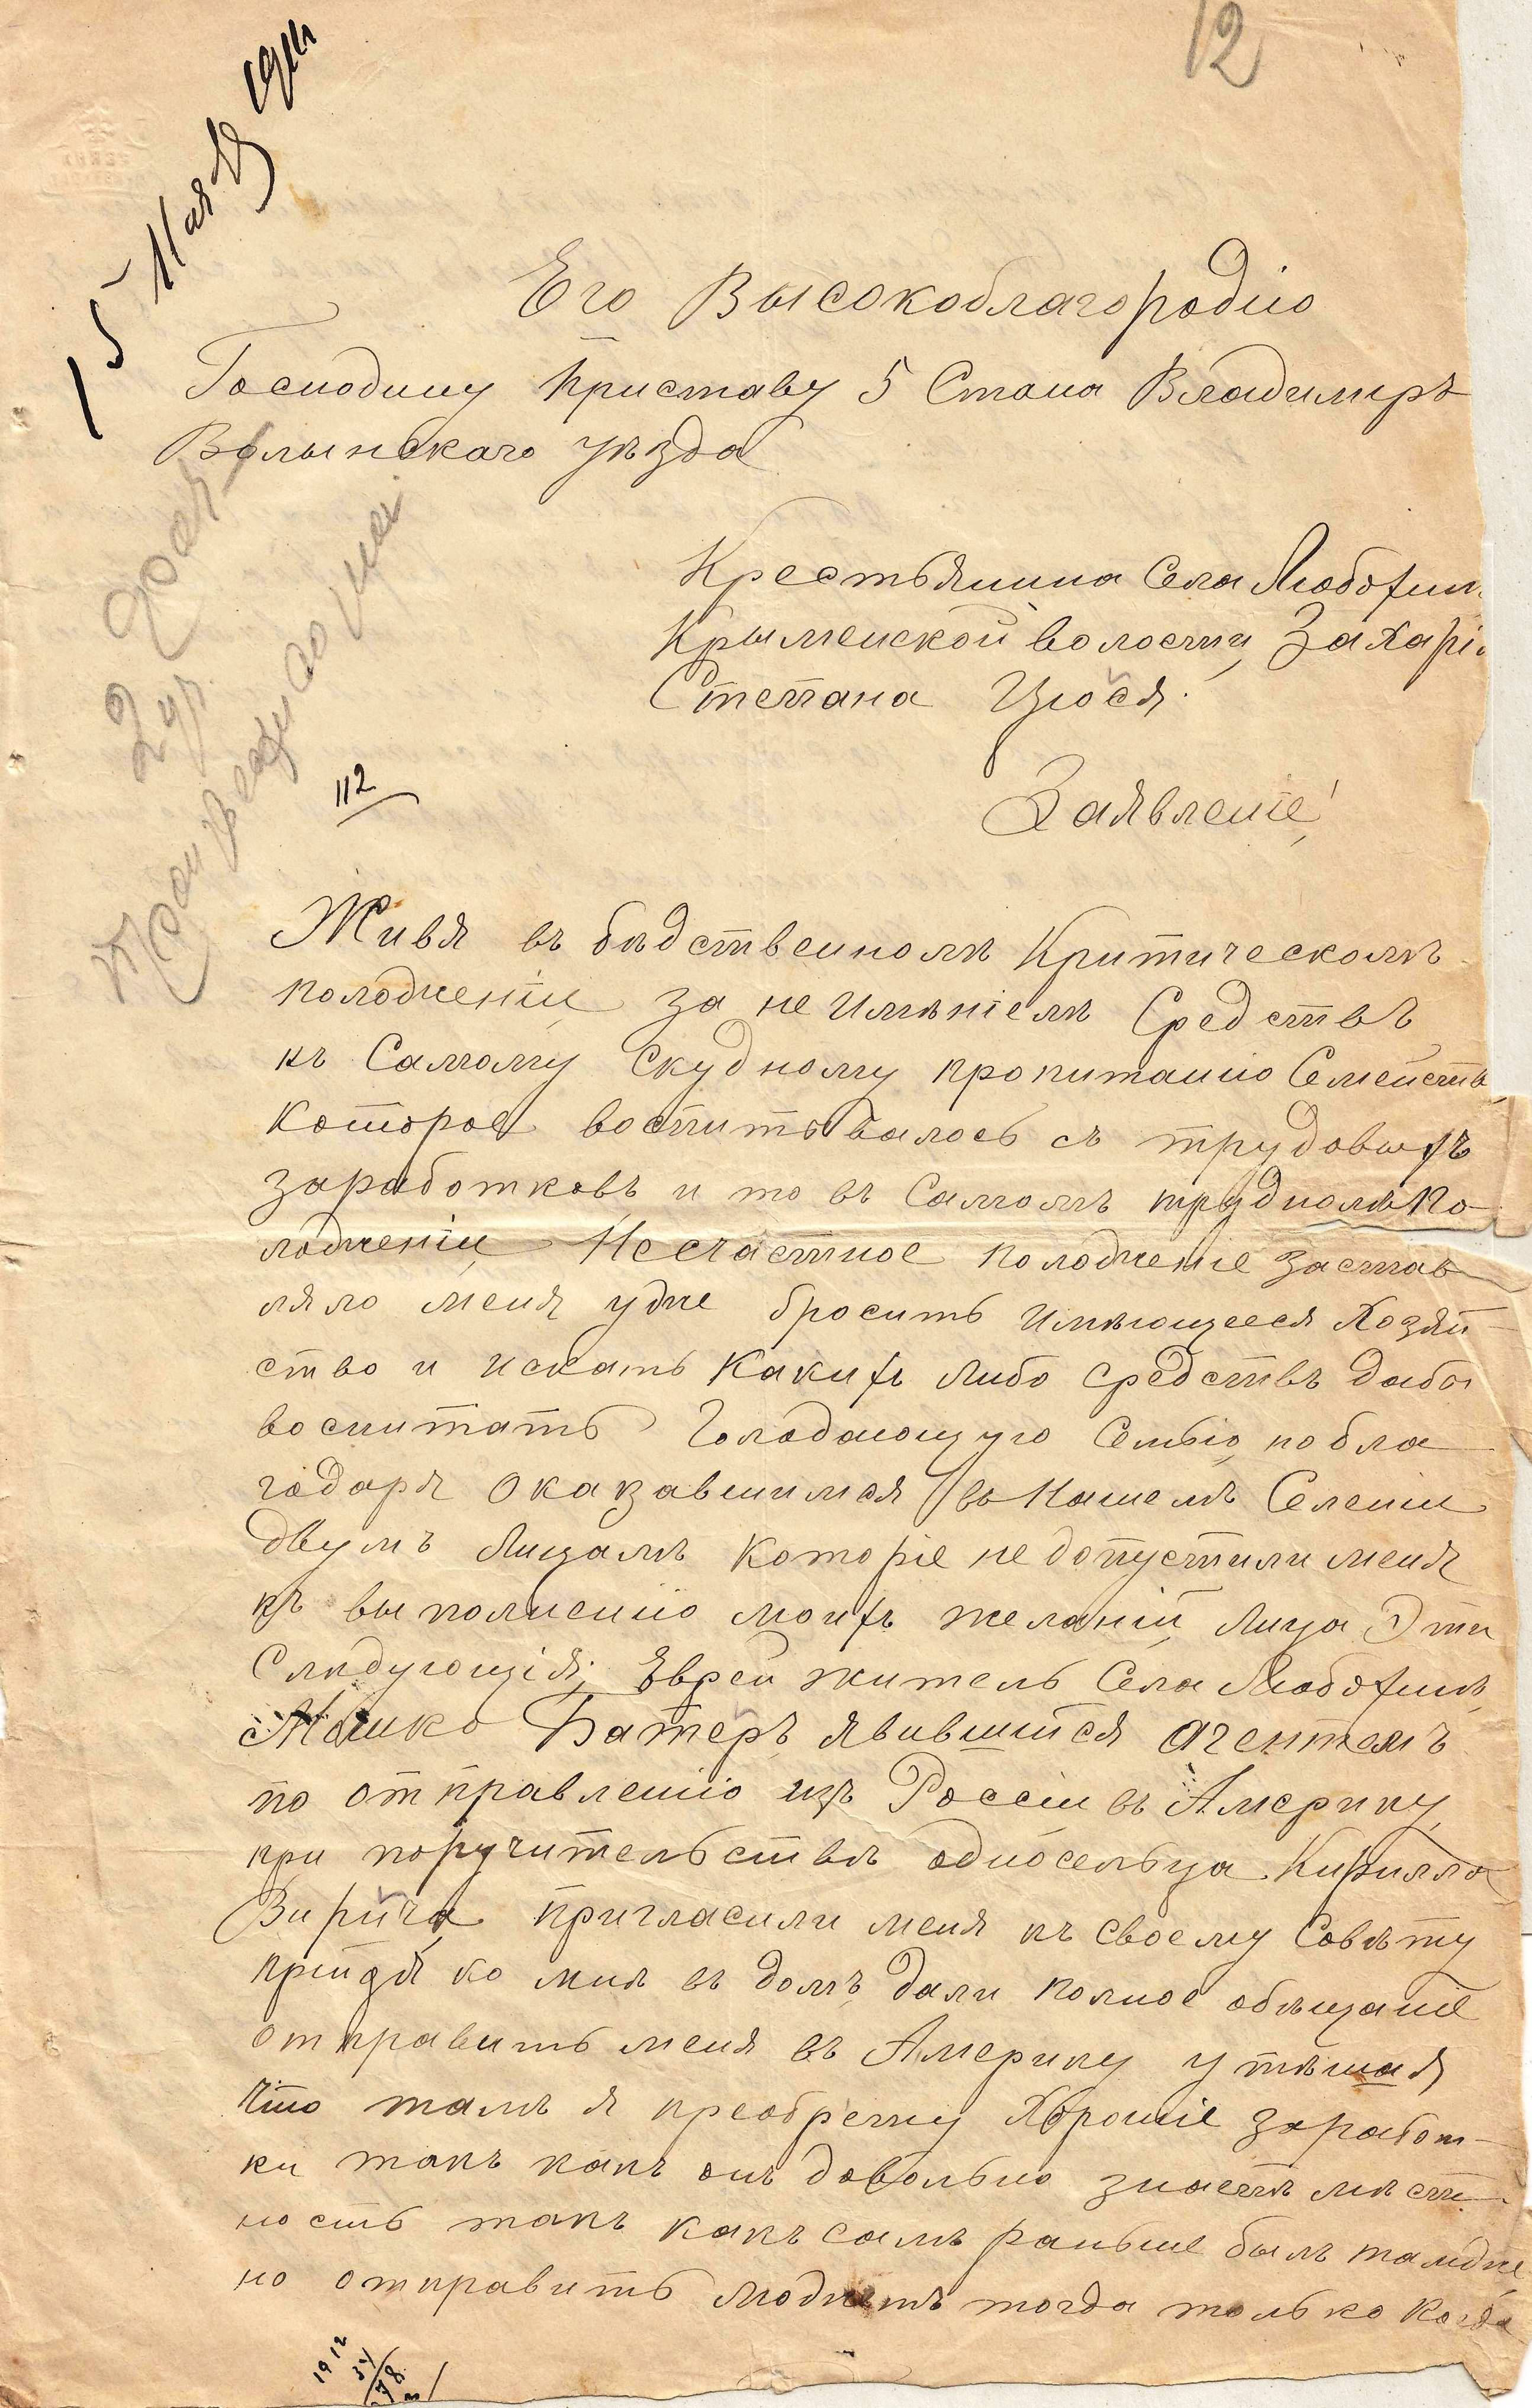 12
15 Мая 1914
Его Высокоблагородію
Господину Приставу 5 Стана Владиміръ
Волынскаго уѣзда
Крестьянина Села Любохин
Крыменской волости, Захарі
Степана Цюся.
112
Заявленіе!
Живя въ бѣдственномъ Критическомъ
положеніи за не имѣніемъ Средствъ
къ Самому Скудному пропитанію Семейств
которое воспитывалось съ трудовыхъ
заработковъ и то въ Самомъ трудномъ по-
ложеніи, Несчастное положеніе застав
ляло меня уже бросить имѣющееся Хозяй-
ство и искать какихъ либо средствъ дабы
воспитать Голодающую Семью, но бла
годаря оказавшимся въ Нашемъ Селеніи
двумъ Лицамъ которіе не допустили меня
къ выполненію моихъ желаній, Лица Эти
Слѣдующія; Еврей житель Села Любохинъ,
Мошко Батеръ, явившійся агентомъ
по отправленію изъ Россіи въ Америку,
при поручительствѣ односельца Кирилла
Вирича пригласили меня къ своему Совѣту
прійдя ко мнѣ въ домъ, дали полное обѣщаніе
отправить меня въ Америку утѣшая
что тамъ я преобрету Хорошіе заработ-
ки такъ какъ онъ довольно знаетъ мѣст-
ность такъ какъ самъ раньше былъ тамже,
но отправить можетъ тогда только когда
1912
34